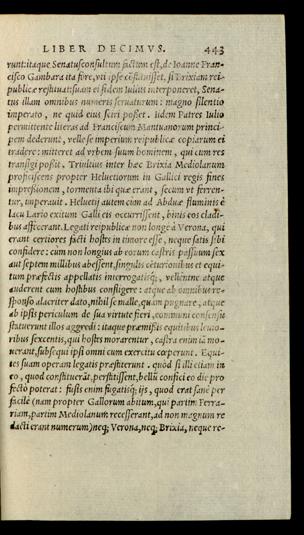 LIBER DECIMVS. 443
runt: itaque Senatusconsultum factum est, de Ioanne Fran-
cisco Gambara ita fore, uti ipse constituisset, si Brixiam rei-
publicæ restituat: suam ei fidem Iulius interponeret, Sena-
tus illam omnibus numeris seruaturum: magno silentio
imperato, ne quid eius sciri posset. Iidem Patres Iulio
permittente literas ad Franciscum Mantuanorum princi-
pem dederunt, uelle se imperium reipublicæ copiarum ei
tradere: mitteret ad urbem suum hominem, qui cum res
transigi posset. Triultius inter hæc Brixia Mediolanum
proficiscens propter Heluetiorum in Gallici regis fines
impressionem, tormenta ibi quæ erant, secum ut ferren-
tur, imperauit. Heluetij autem cum ad Abduæ fluminis è
lacu Lario exitum Galli eis occurrissent, binis eos cladi-
bus affecerant. Legati reipublicæ non longè à Verona, qui
erant certiores facti hostes in timore esse, neque satis sibi
confidere: cùm non longius ab eorum castris passuum sex
aut septem millibus abessent, singulis ceturionibus et equi-
tum præfectis appellatis interrogatisq;, uellentne atque
auderent cum hostibus confligere: atque ab omnibus re-
sponso alacriter dato, nihil se malle, quàm pugnare, atque
ab ipsis periculum de sua uirtute fieri, communi consensu
statuerunt illos aggredi: itaque præmissis equitibus leuio-
ribus sexcentis, qui hostes morarentur, castra enim iã mo-
uerant, subsequi ipsi omni cum exercitu cœperunt. Equi-
tes suam operam legatis præstiterunt. quòd si illi etiam in
eo, quod constituerãt, perstitissent, bellũ confici eo die pro
fecto poterat: fusis enim fugatisq; ijs, quod erat sanè per
facile (nam propter Gallorum abitum, qui partim Ferra-
riam, partim Mediolanum recesserant, ad non magnum re
dacti erant numerum) neq; Verona, neq; Brixia, neque re-